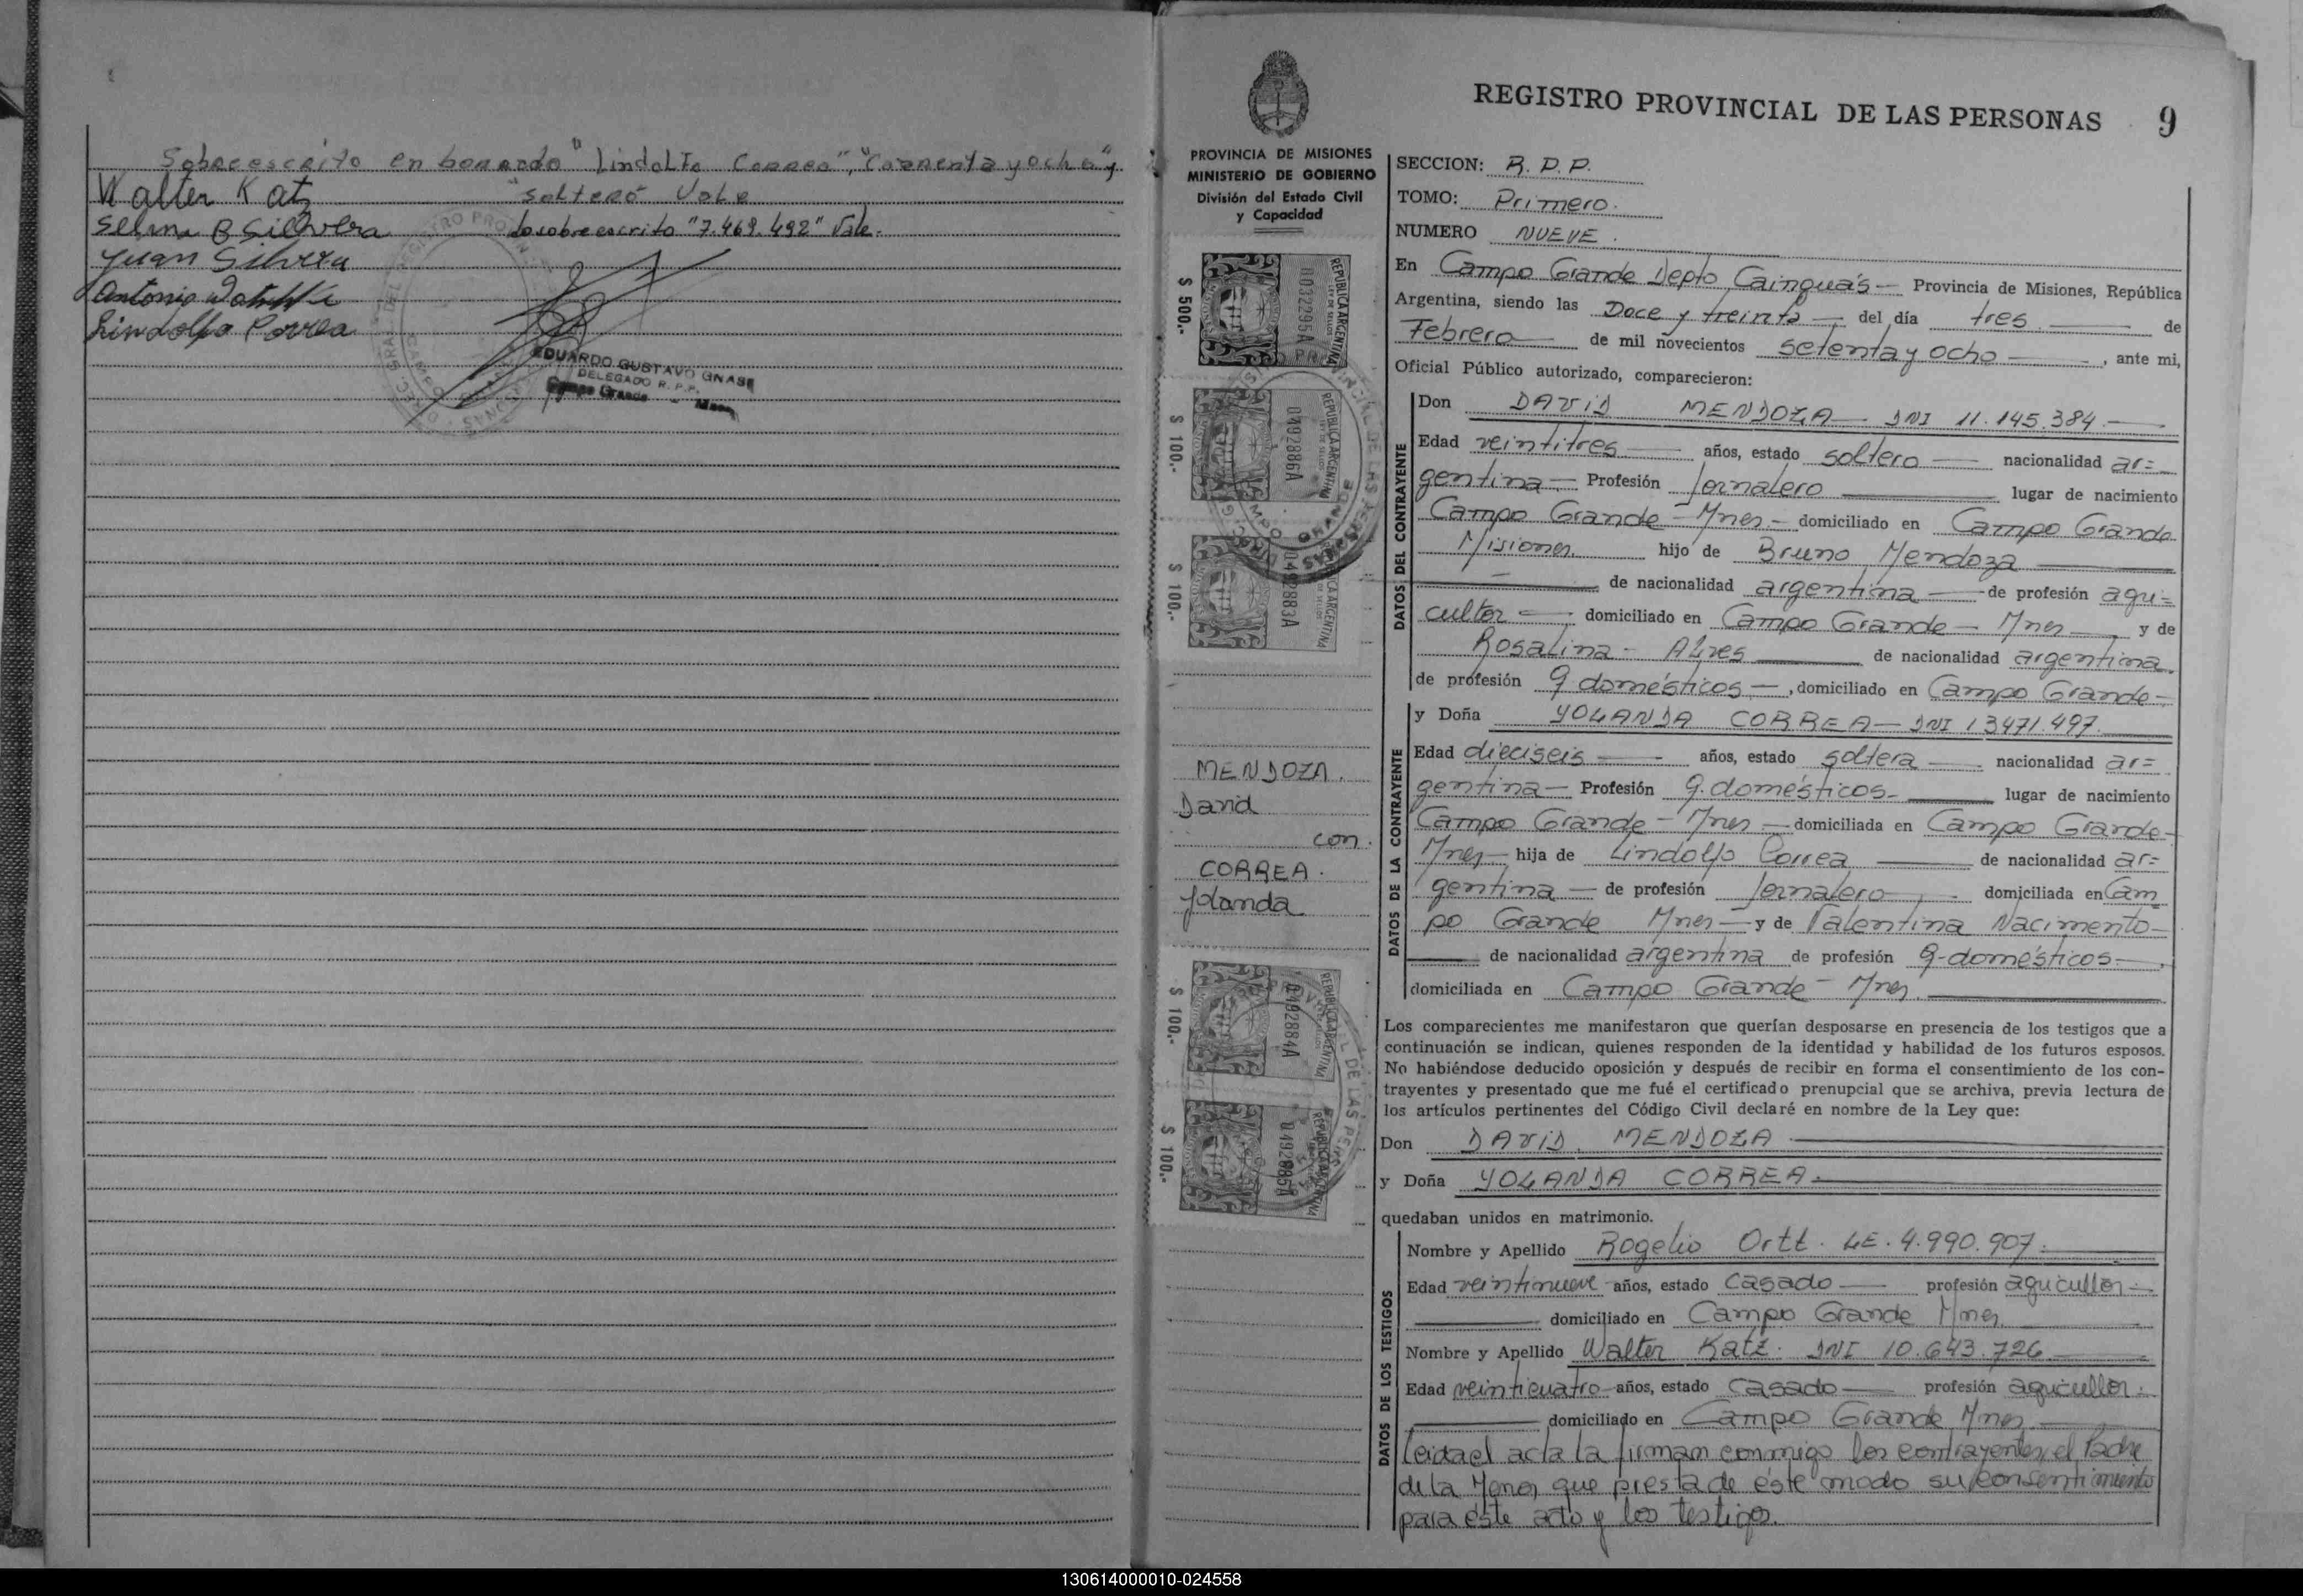 Sobreescrito en borrado "Lindolfo Correa", "Cuarenta y ocho" y
"soltero" Vale
Walter Katz
Selima B Silvera
lo sobreescrito "7.469.492" Vale.
Juan Silvera
Antonio
Lindolfo Correa
EDUARDO GUSTAVO GNASS
DELEGADO R. P. P.
Campo Grande - Mnes
REGISTRO PROVINCIAL DE LAS PERSONAS 9
PROVINCIA DE MISIONES
MINISTERIO DE GOBIERNO
División del Estado Civil
y Capacidad
$ 500.-
REPUBLICA ARGENTINA
$ 100.-
0492886A
REPUBLICA ARGENTINA
$ 100.-
0492883A
REPUBLICA ARGENTINA
MENDOZA.
David
con.
CORREA.
Yolanda
$ 100.-
0492884A
REPUBLICA ARGENTINA
$ 100.-
0492885A
REPUBLICA ARGENTINA
SECCION: R. P. P.
TOMO: Primero.
NUMERO NUEVE.
En Campo Grande Depto Cainguás — Provincia de Misiones, República
Argentina, siendo las Doce y treinta — del día tres — de
Febrero — de mil novecientos setenta y ocho —, ante mi,
Oficial Público autorizado, comparecieron:
DATOS DEL CONTRAYENTE
Don DAVID MENDOZA — DNI 11.145.384 —
Edad veintitres — años, estado soltero — nacionalidad ar=
gentina — Profesión Jornalero — lugar de nacimiento
Campo Grande - Mnes - domiciliado en Campo Grande
Misiones. hijo de Bruno Mendoza —
— de nacionalidad argentina — de profesión agri=
cultor — domiciliado en Campo Grande — Mnes —, y de
Rosalina - Alves — de nacionalidad argentina.
de profesión q. domésticos —, domiciliado en Campo Grande —
DATOS DE LA CONTRAYENTE
y Doña YOLANDA CORREA — DNI 13471.497.
Edad dieciseis — años, estado soltera — nacionalidad ar=
gentina — Profesión q. domésticos — lugar de nacimiento
Campo Grande - Mnes — domiciliada en Campo Grande -
Mnes — hija de Lindolfo Correa — de nacionalidad ar=
gentina — de profesión Jornalero — domiciliada en Cam
po Grande Mnes — y de Valentina Nacimento —
— de nacionalidad argentina de profesión q. domésticos —,
domiciliada en Campo Grande - Mnes. —
Los comparecientes me manifestaron que querían desposarse en presencia de los testigos que a
continuación se indican, quienes responden de la identidad y habilidad de los futuros esposos.
No habiéndose deducido oposición y después de recibir en forma el consentimiento de los con-
trayentes y presentado que me fué el certificado prenupcial que se archiva, previa lectura de
los artículos pertinentes del Código Civil declaré en nombre de la Ley que:
Don DAVID MENDOZA —
y Doña YOLANDA CORREA. —
quedaban unidos en matrimonio.
DATOS DE LOS TESTIGOS
Nombre y Apellido Rogelio Ortt. LE. 4.990.907. —
Edad veintinueve años, estado casado — profesión agricultor —
— domiciliado en Campo Grande Mnes.
Nombre y Apellido Walter Katz. DNI 10.643.726 —
Edad veinticuatro años, estado casado — profesión agricultor.
— domiciliado en Campo Grande Mnes —
Leida el acta la firman conmigo los contrayentes, el Padre
de la Menor que presta de éste modo su consentimiento
para éste acto y los testigos.
130614000010-024558